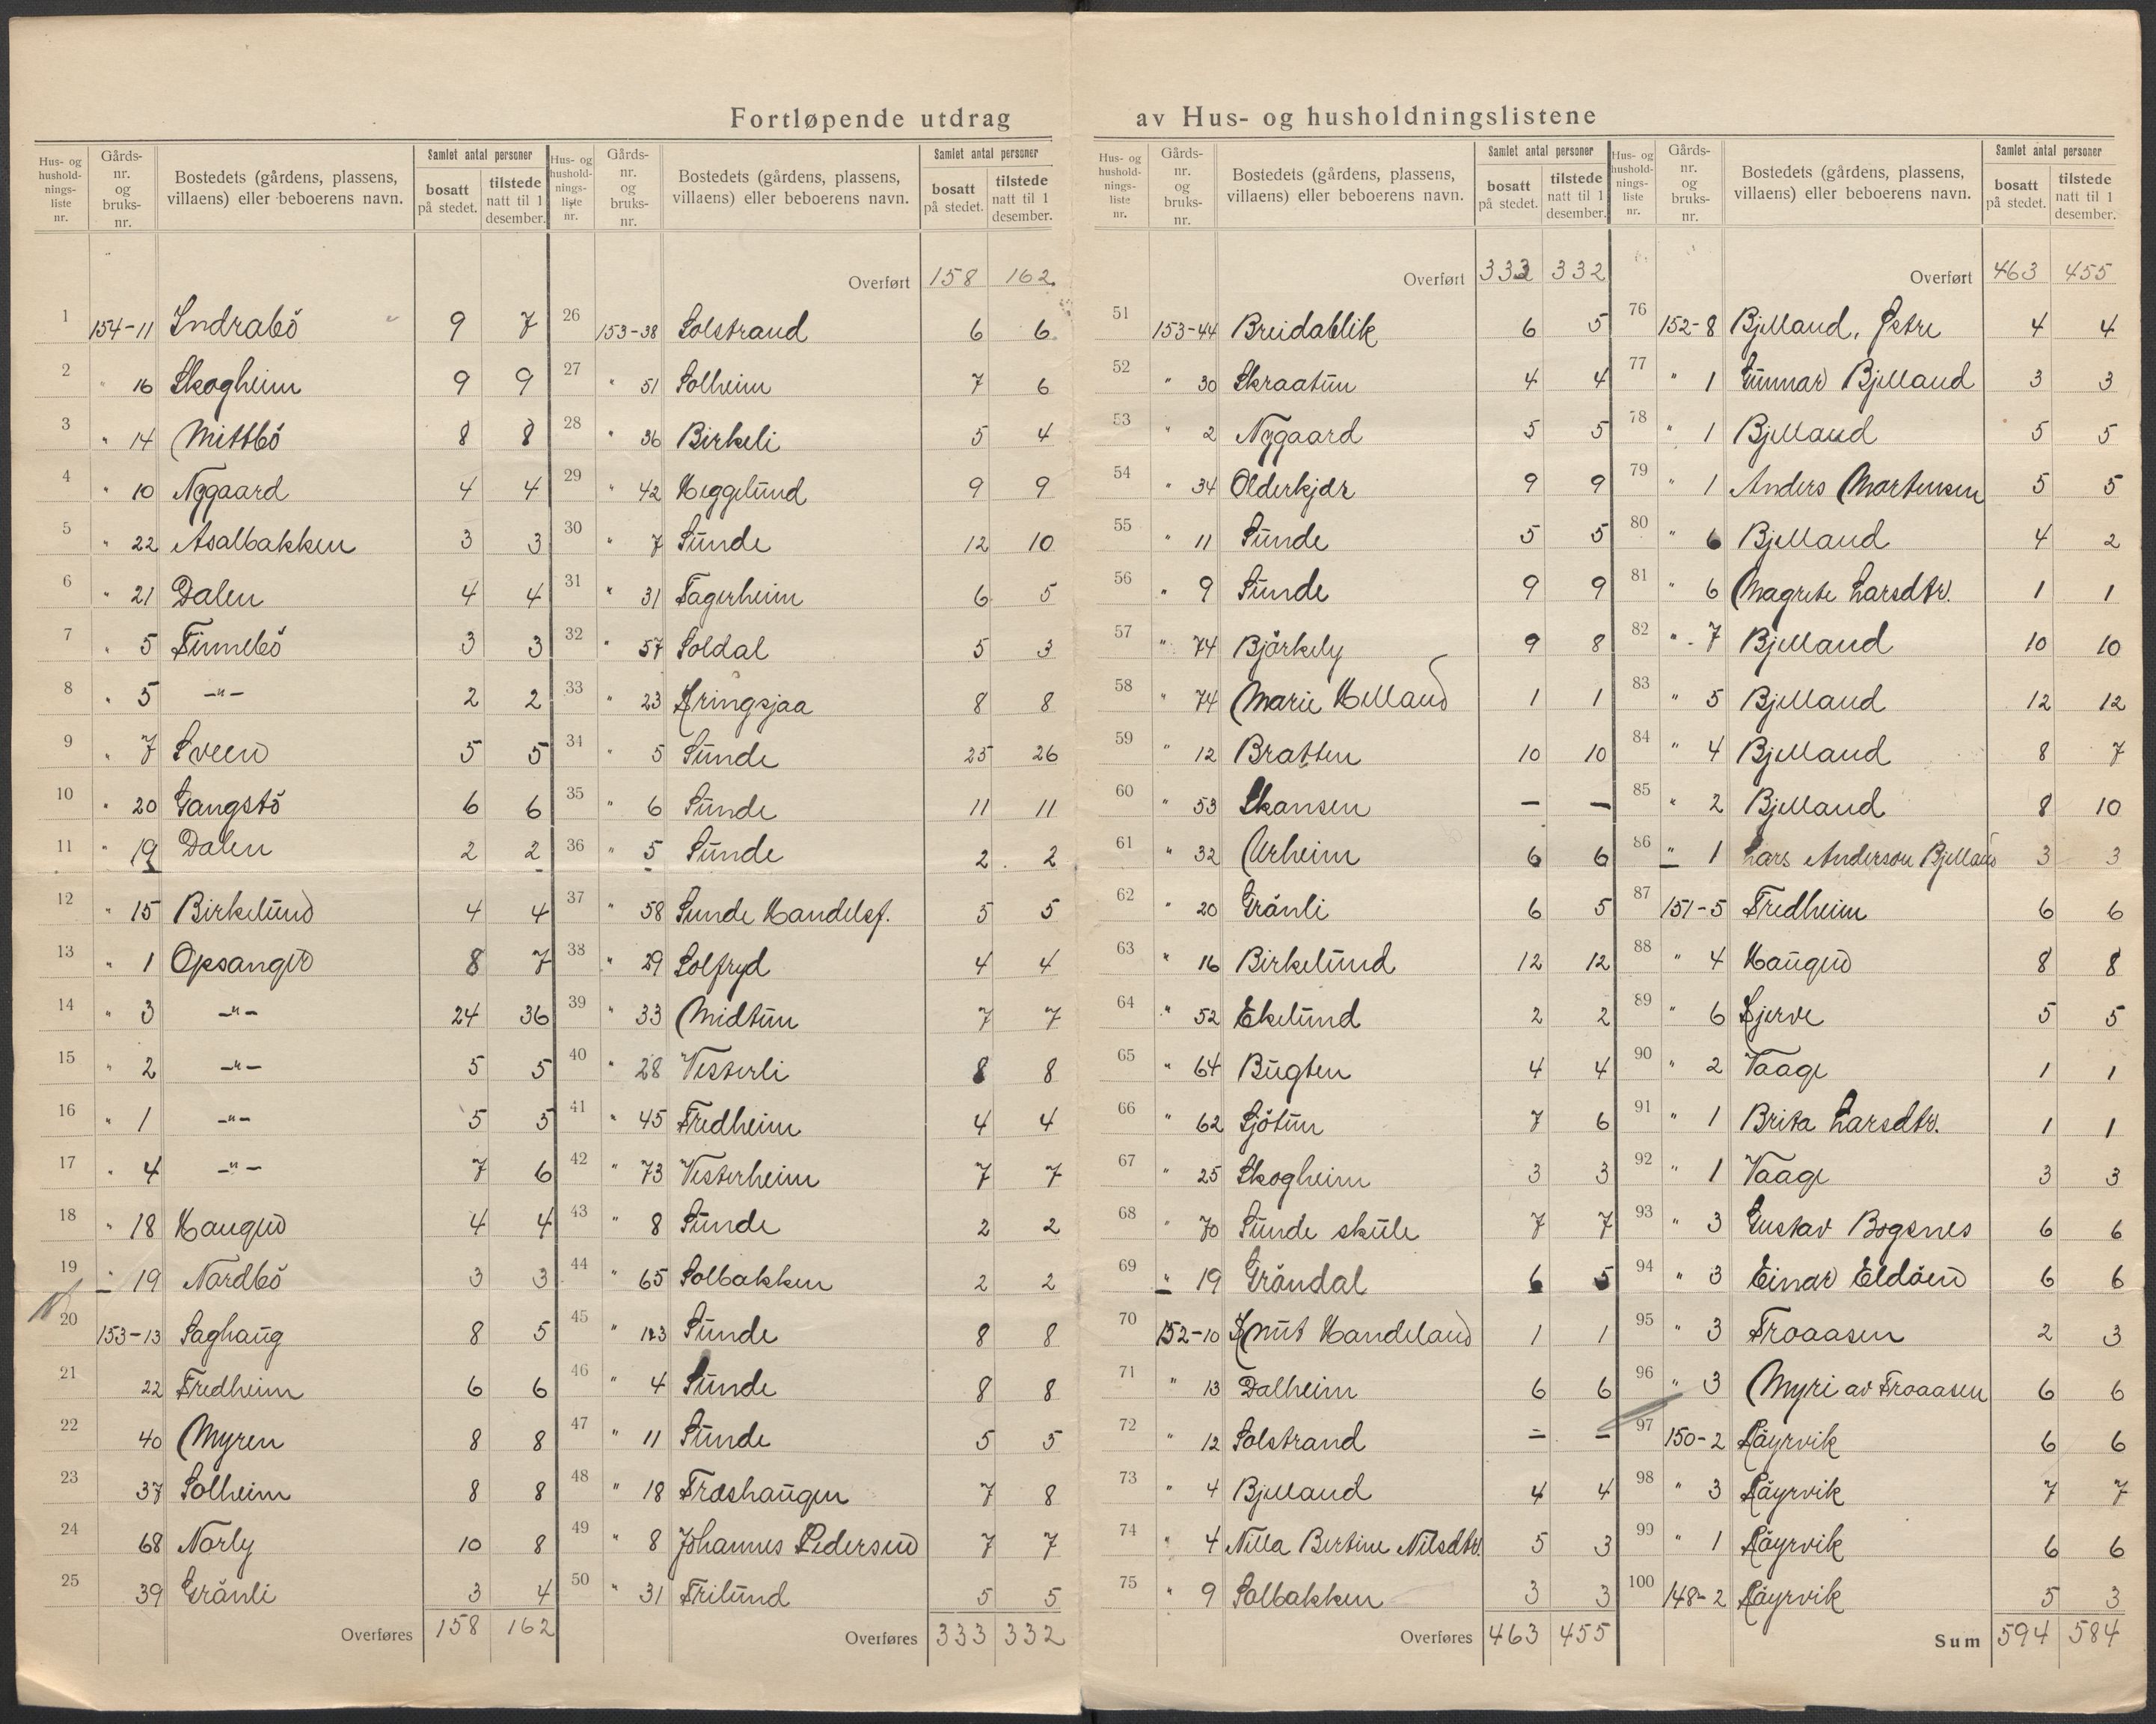 Fortløpende utdrag av Hus- og husholdningslistene
Hus- og husholdnings-liste nr. | Gårds-nr. og bruks-nr. | Bostedets (gårdens, plassens, villaens) eller beboerens navn. | Samlet antal personer | bosatt på stedet. | tilstede natt til 1 desember.
1 154-11 Indrabö 9 7
2 " 16 Skogheim 9 9
3 " 14 Mittbö 8 8
4 " 10 Nygaard 4 4
5 " 22 Asalbakken 3 3
6 " 21 Dalen 4 4
7 " 5 Finnebö 3 3
8 " 5 —"— 2 2
9 " 7 Sveen 5 5
10 " 20 Gangstö 6 6
11 " 19 Dalen 2 2
12 " 15 Birkelund 4 4
13 " 1 Opsanger 8 7
14 " 3 —"— 24 36
15 " 2 —"— 5 5
16 " 1 —"— 5 5
17 " 4 —"— 7 6
18 " 18 Haugen 4 4
19 " 19 Nordbö 3 3
20 153-13 Saghaug 8 5
21 22 Fredheim 6 6
22 40 Myren 8 8
23 37 Solheim 8 8
24 68 Norly 10 8
25 39 Grönli 3 4
Overføres 158 162
Hus- og husholdnings-liste nr. | Gårds-nr. og bruks-nr. | Bostedets (gårdens, plassens, villaens) eller beboerens navn. | Samlet antal personer | bosatt på stedet. | tilstede natt til 1 desember.
Overført 158 162
26 153-38 Solstrand 6 6
27 " 51 Solheim 7 6
28 " 36 Birkeli 5 4
29 " 42 Heggelund 9 9
30 " 7 Sunde 12 10
31 " 31 Fagerheim 6 5
32 " 57 Soldal 5 3
33 " 23 Kringsjaa 8 8
34 " 5 Sunde 25 26
35 " 6 Sunde 11 11
36 " 5 Sunde 2 2
37 " 58 Sunde Handelsf. 5 5
38 " 29 Solfryd 4 4
39 " 33 Midtun 7 7
40 " 28 Vesterli 8 8
41 " 45 Fredheim 4 4
42 " 73 Vesterheim 7 7
43 " 8 Sunde 2 2
44 " 65 Solbakken 2 2
45 " Sunde 8 8
46 " 4 Sunde 8 8
47 " 11 Sunde 5 5
48 " 18 Froshaugen 7 8
49 " 8 Johannes Pedersen 7 7
50 " 31 Frilund 5 5
Overføres 333 332
Hus- og husholdnings-liste nr. | Gårds-nr. og bruks-nr. | Bostedets (gårdens, plassens, villaens) eller beboerens navn. | Samlet antal personer | bosatt på stedet. | tilstede natt til 1 desember.
Overført 333 332
51 153-44 Breidablik 6 5
52 " 30 Skraatun 4 4
53 " 2 Nygaard 5 5
54 " 34 Olderkjær 9 9
55 " 11 Sunde 5 5
56 " 9 Sunde 9 9
57 " 74 Björkely 9 8
58 " 74 Marie Helland 1 1
59 " 12 Bratten 10 10
60 " 53 Skansen — —
61 " 32 Urheim 6 6
62 " 20 Grönli 6 5
63 " 16 Birkelund 12 12
64 " 52 Ekelund 2 2
65 " 64 Bugten 4 4
66 " 62 Sjötun 7 6
67 " 25 Skogheim 3 3
68 " 70 Sunde skule 7 7
69 " 19 Gröndal 6 5
70 152-10 Knut Handeland 1 1
71 " 13 Dalheim 6 6
72 " 12 Solstrand — —
73 " 4 Bjelland 4 4
74 " 4 Nilla Bertine Nilsdtr. 5 3
75 " 9 Solbakken 3 3
Overføres 463 455
Hus- og husholdnings-liste nr. | Gårds-nr. og bruks-nr. | Bostedets (gårdens, plassens, villaens) eller beboerens navn. | Samlet antal personer | bosatt på stedet. | tilstede natt til 1 desember.
Overført 463 455
76 152-8 Bjelland, Petre 4 4
77 " 1 Gunnar Bjelland 3 3
78 " 1 Bjelland 5 5
79 " 1 Anders Mortensen 5 5
80 " 6 Bjelland 4 2
81 " 6 Magrete Larsdtr. 1 1
82 " 7 Bjelland 10 10
83 " 5 Bjelland 12 12
84 " 4 Bjelland 8 7
85 " 2 Bjelland 8 10
86 " 1 Lars Anderson Bjelland 3 3
87 151-5 Fredheim 6 6
88 " 4 Haugen 8 8
89 " 6 Kjerve 5 5
90 " 2 Vaage 1 1
91 " 1 Brita Larsdtr. 1 1
92 " 1 Vaage 3 3
93 " 3 Gustav Bogsnes 6 6
94 " 3 Einar Eldöen 6 6
95 " 3 Troaasen 2 3
96 " 3 Myri av Troaasen 6 6
97 150-2 Röyrvik 6 6
98 " 3 Röyrvik 7 7
99 " 1 Röyrvik 6 6
100 148-2 Röyrvik 5 3
Sum 594 584